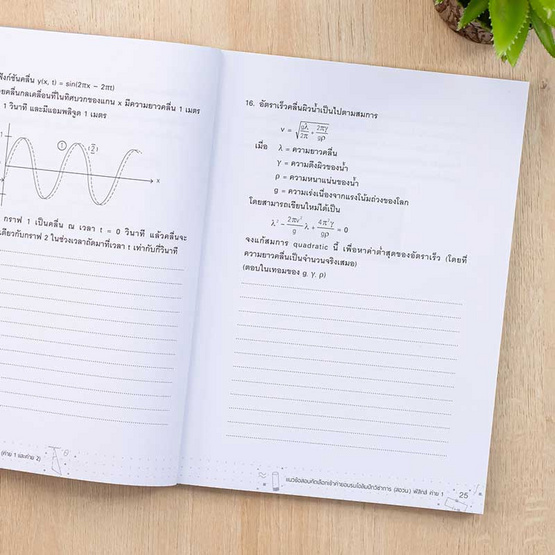 ฟังก์ชันคลื่น y(x, t) = sin(2πx − 2πt)
คลื่นกลเคลื่อนที่ในทิศบวกของแกน x มีความยาวคลื่น 1 เมตร
1 วินาที และมีแอมพลิจูด 1 เมตร
1
2
x
กราฟ 1 เป็นคลื่น ณ เวลา t = 0 วินาที แล้วคลื่นจะ
เดียวกับกราฟ 2 ในช่วงเวลาถัดมาที่เวลา t เท่ากับกี่วินาที
(ค่าย 1 และค่าย 2)
16. อัตราเร็วคลื่นผิวน้ำเป็นไปตามสมการ
v = √(gλ/2π + 2πγ/gρ)
เมื่อ λ = ความยาวคลื่น
γ = ความตึงผิวของน้ำ
ρ = ความหนาแน่นของน้ำ
g = ความเร่งเนื่องจากแรงโน้มถ่วงของโลก
โดยสามารถเขียนใหม่ได้เป็น
λ² − 2πv²/g λ + 4π²γ/gρ = 0
จงแก้สมการ quadratic นี้ เพื่อหาค่าต่ำสุดของอัตราเร็ว (โดยที่
ความยาวคลื่นเป็นจำนวนจริงเสมอ)
(ตอบในเทอมของ g, γ, ρ)
แนวข้อสอบคัดเลือกเข้าค่ายอบรมโอลิมปิกวิชาการ (สอวน.) ฟิสิกส์ ค่าย 1 25